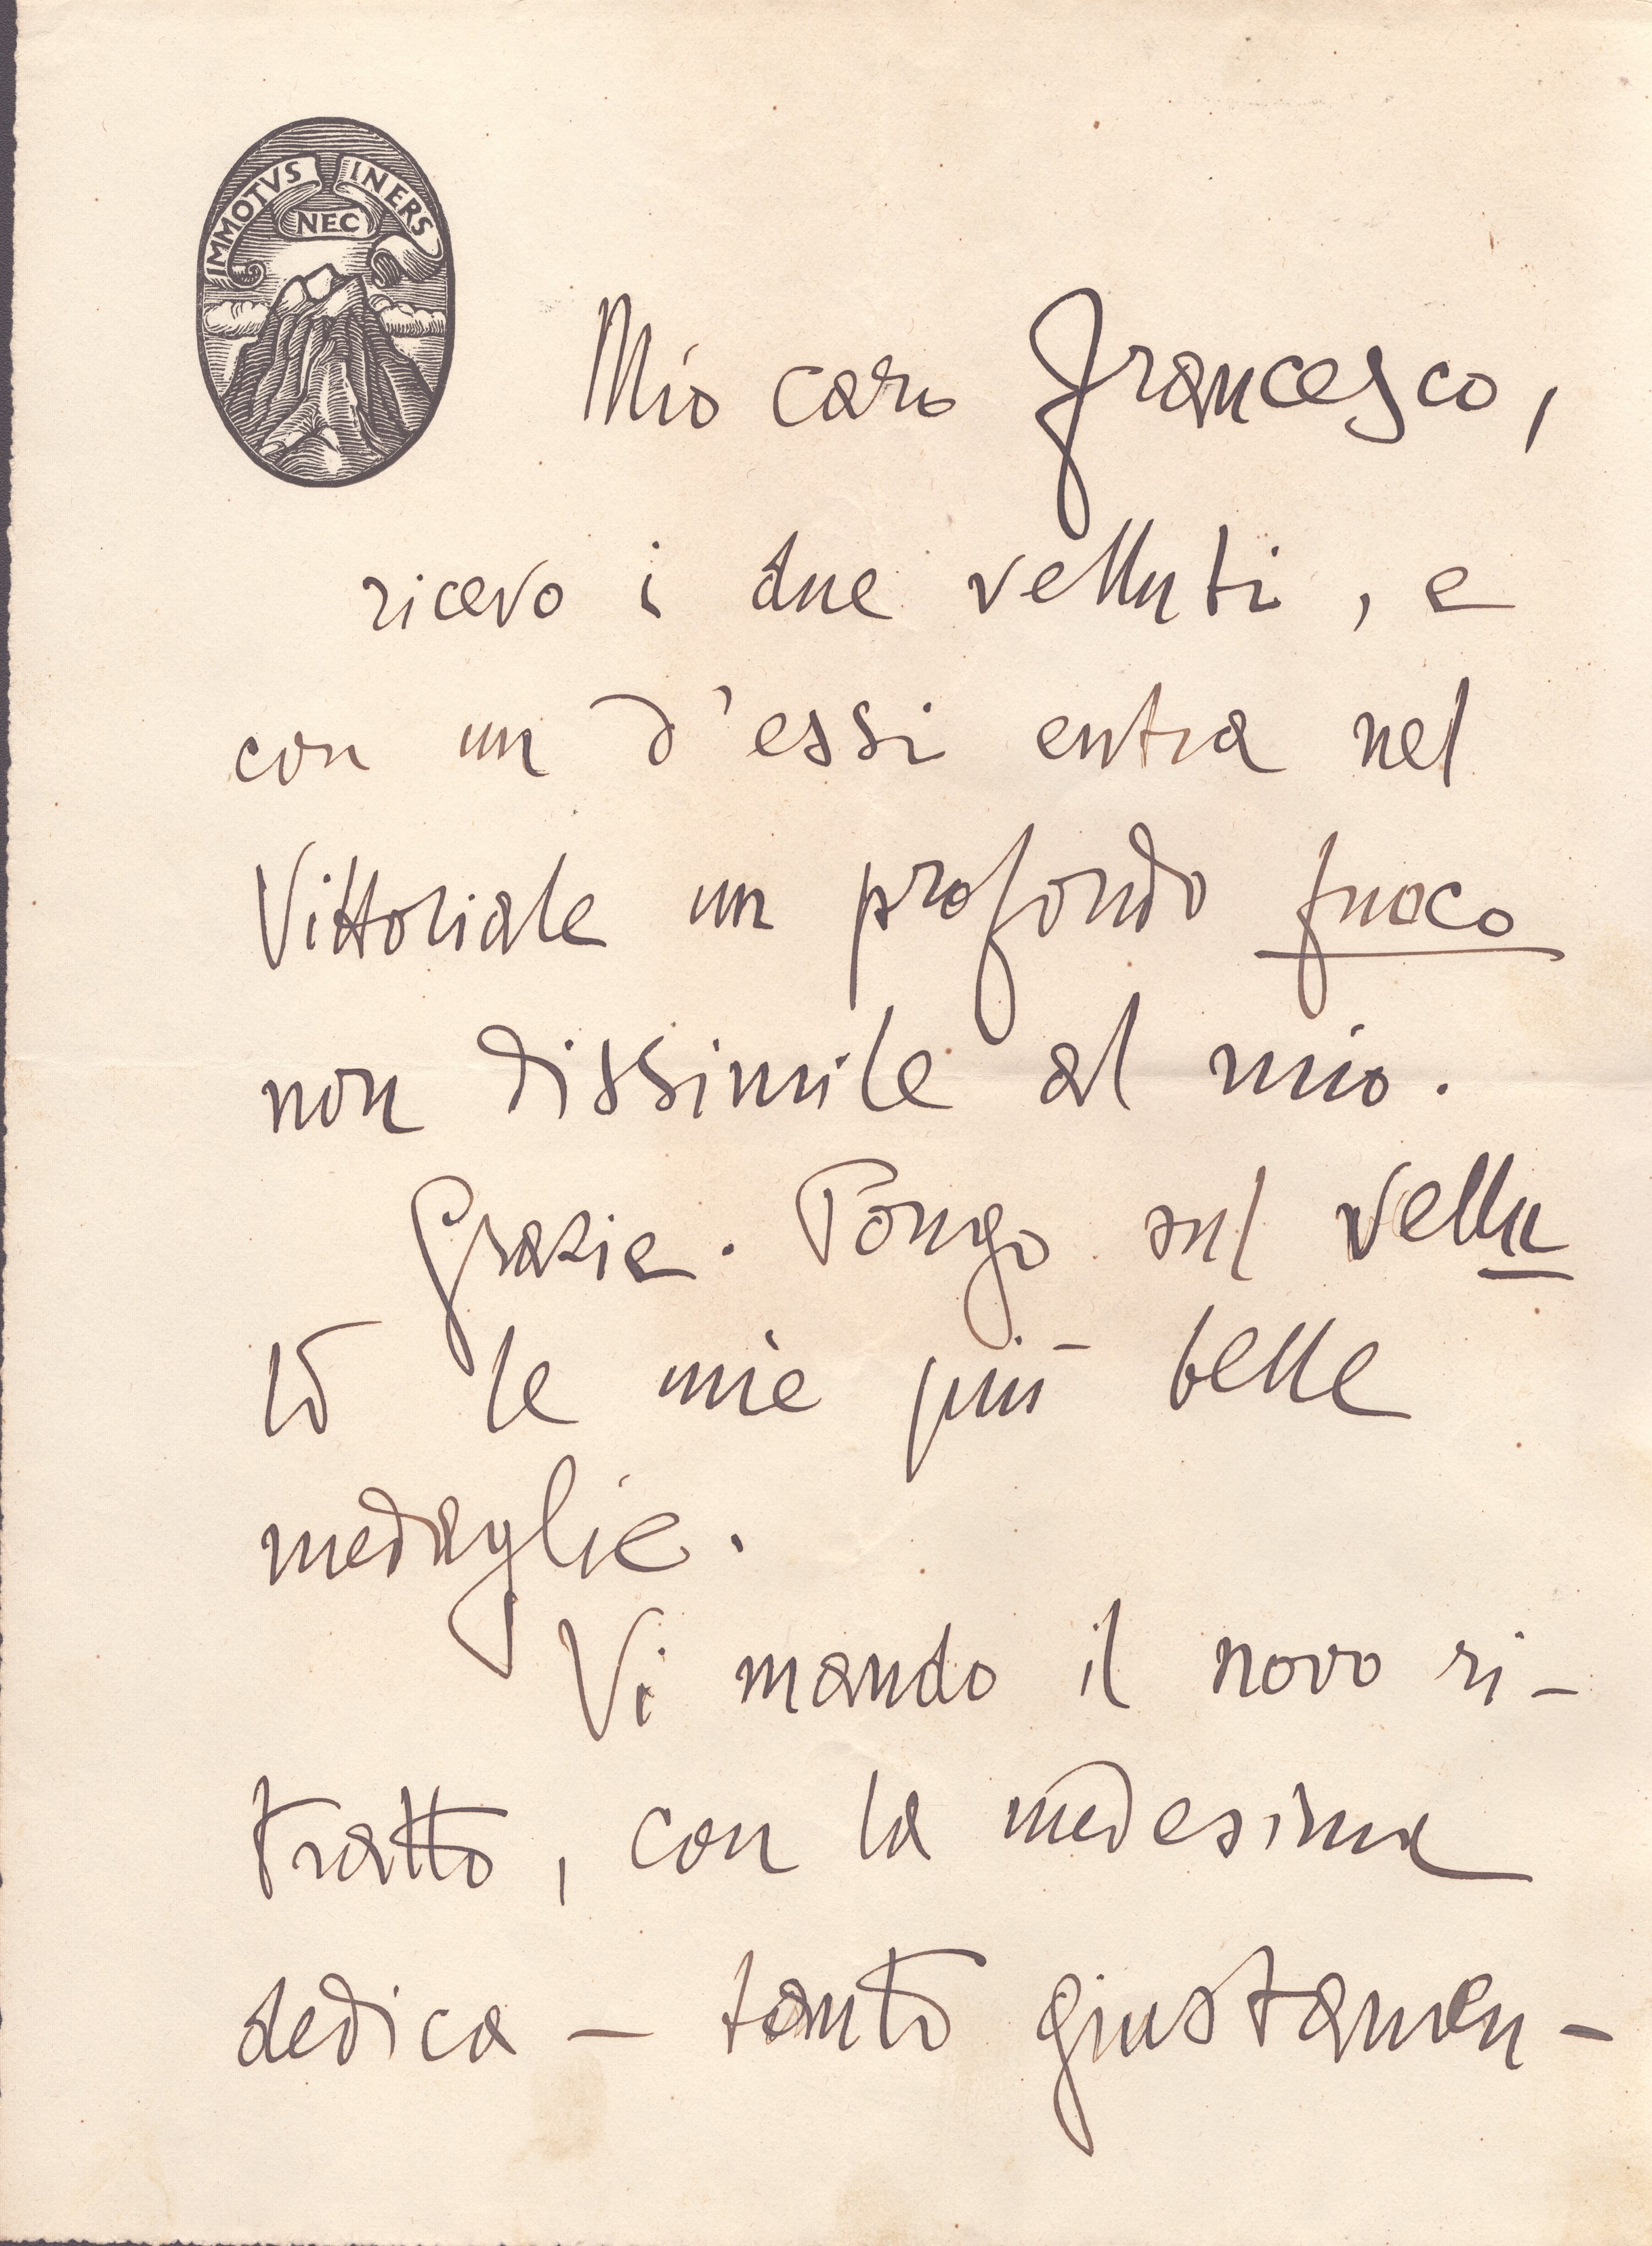 IMMOTVS NEC INERS
Mio caro Francesco,
ricevo i due velluti, e
con un d'essi entra nel
Vittoriale un profondo fuoco
non dissimile al mio.
Grazie. Pongo sul vellu
to le mie più belle
medaglie.
Vi mando il novo ri-
tratto, con la medesima
dedica — tanto giustamen-